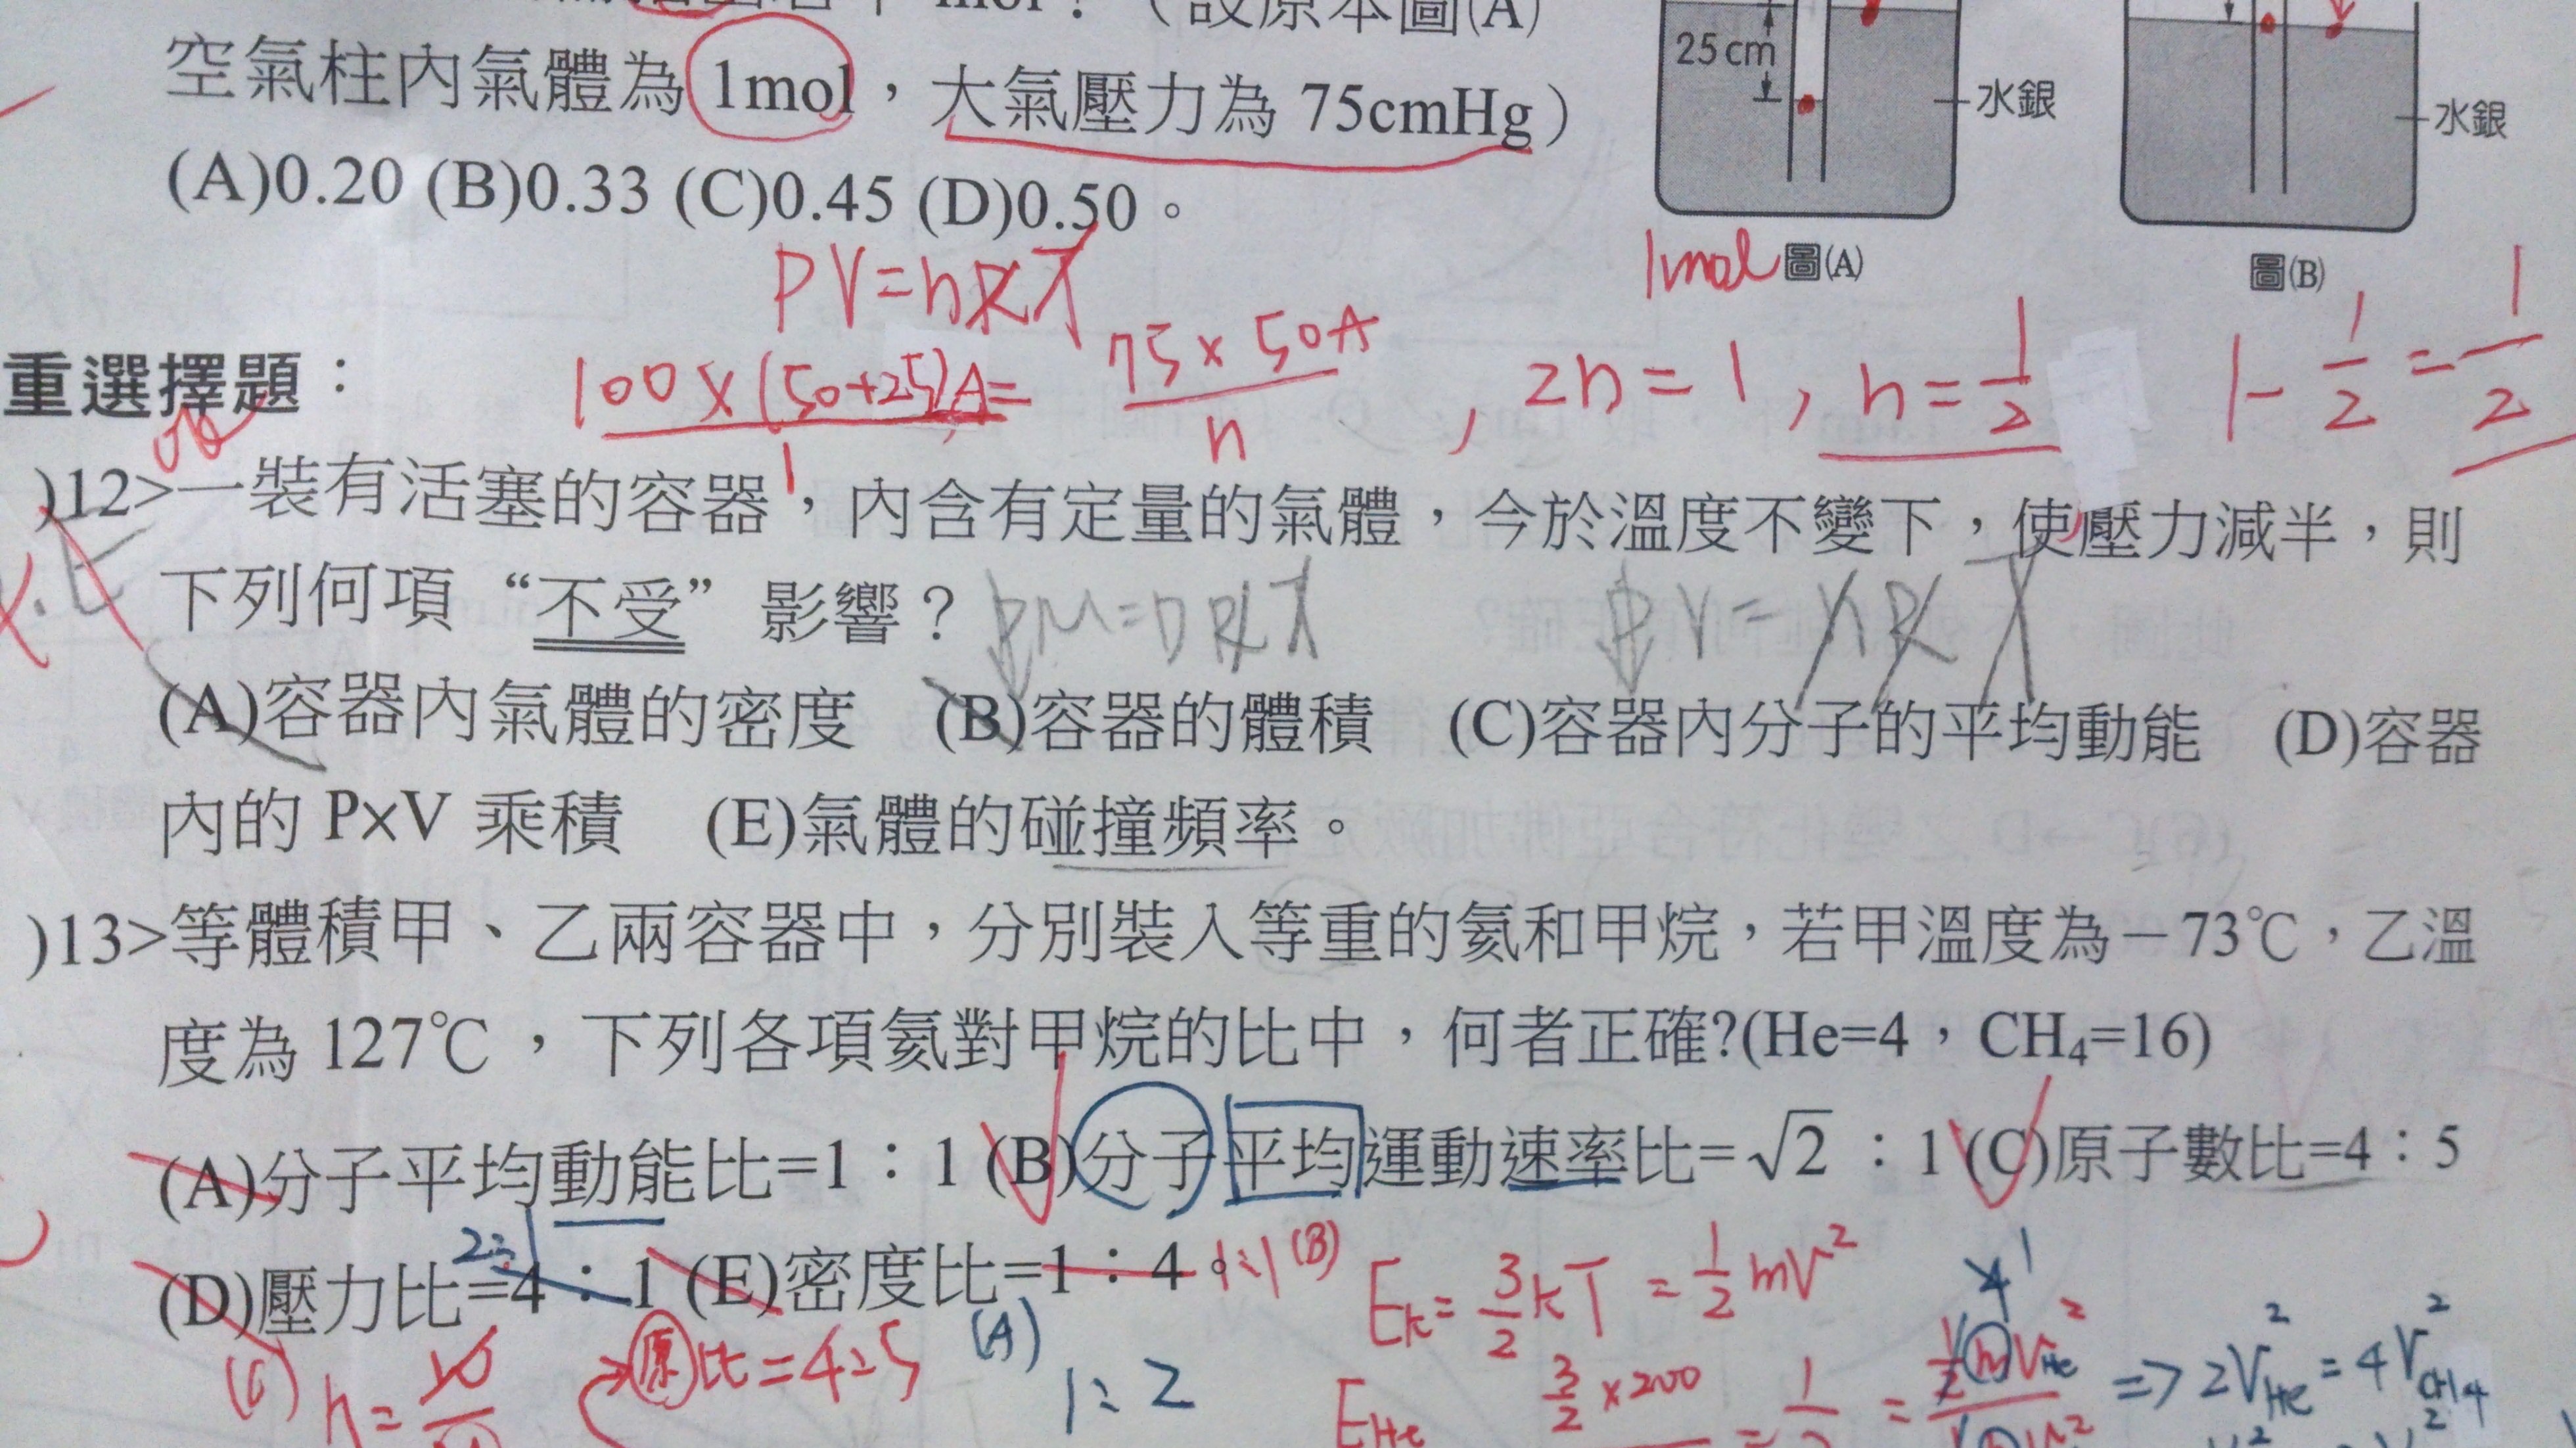 mol？（設原本圖(A)
空氣柱內氣體為 1mol，大氣壓力為 75cmHg）
(A)0.20 (B)0.33 (C)0.45 (D)0.50。
25 cm
水銀
水銀
1mol 圖(A)
圖(B)
PV=nRT
重選擇題：
100×(50+25)A/1 = 75×50A/n , 2n=1, n=1/2
1-1/2=1/2
)12>一裝有活塞的容器，內含有定量的氣體，今於溫度不變下，使壓力減半，則
下列何項“不受”影響？ PM=DRT PV=nRT
(A)容器內氣體的密度 (B)容器的體積 (C)容器內分子的平均動能 (D)容器
內的 P×V 乘積 (E)氣體的碰撞頻率。
)13>等體積甲、乙兩容器中，分別裝入等重的氦和甲烷，若甲溫度為－73℃，乙溫
度為 127℃，下列各項氦對甲烷的比中，何者正確?(He=4，CH₄=16)
(A)分子平均動能比=1：1 (B)分子平均運動速率比=√2：1 (C)原子數比=4：5
2:1
(D)壓力比=4：1 (E)密度比=1：4。 1:1
(B) Ek=3/2kT=1/2mV²
(C) n=
原比=4:5
(A) 1:2
EHe 3/2×200
=> 2V²He=4V²CH4